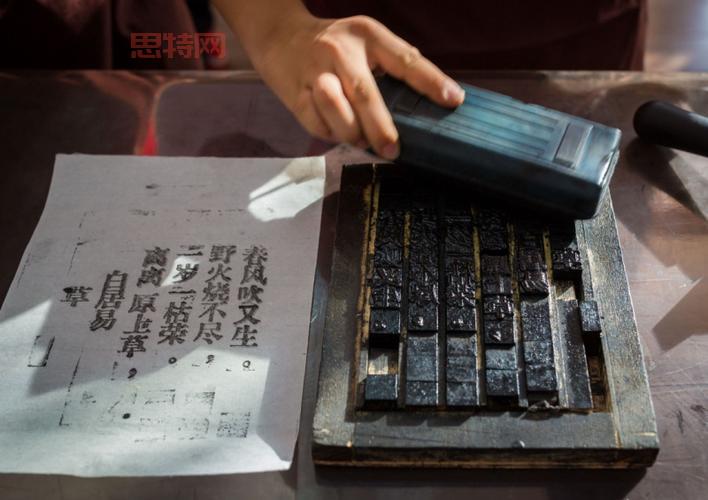 思特网
草
白居易
离离原上草，
一岁一枯荣。
野火烧不尽，
春风吹又生。